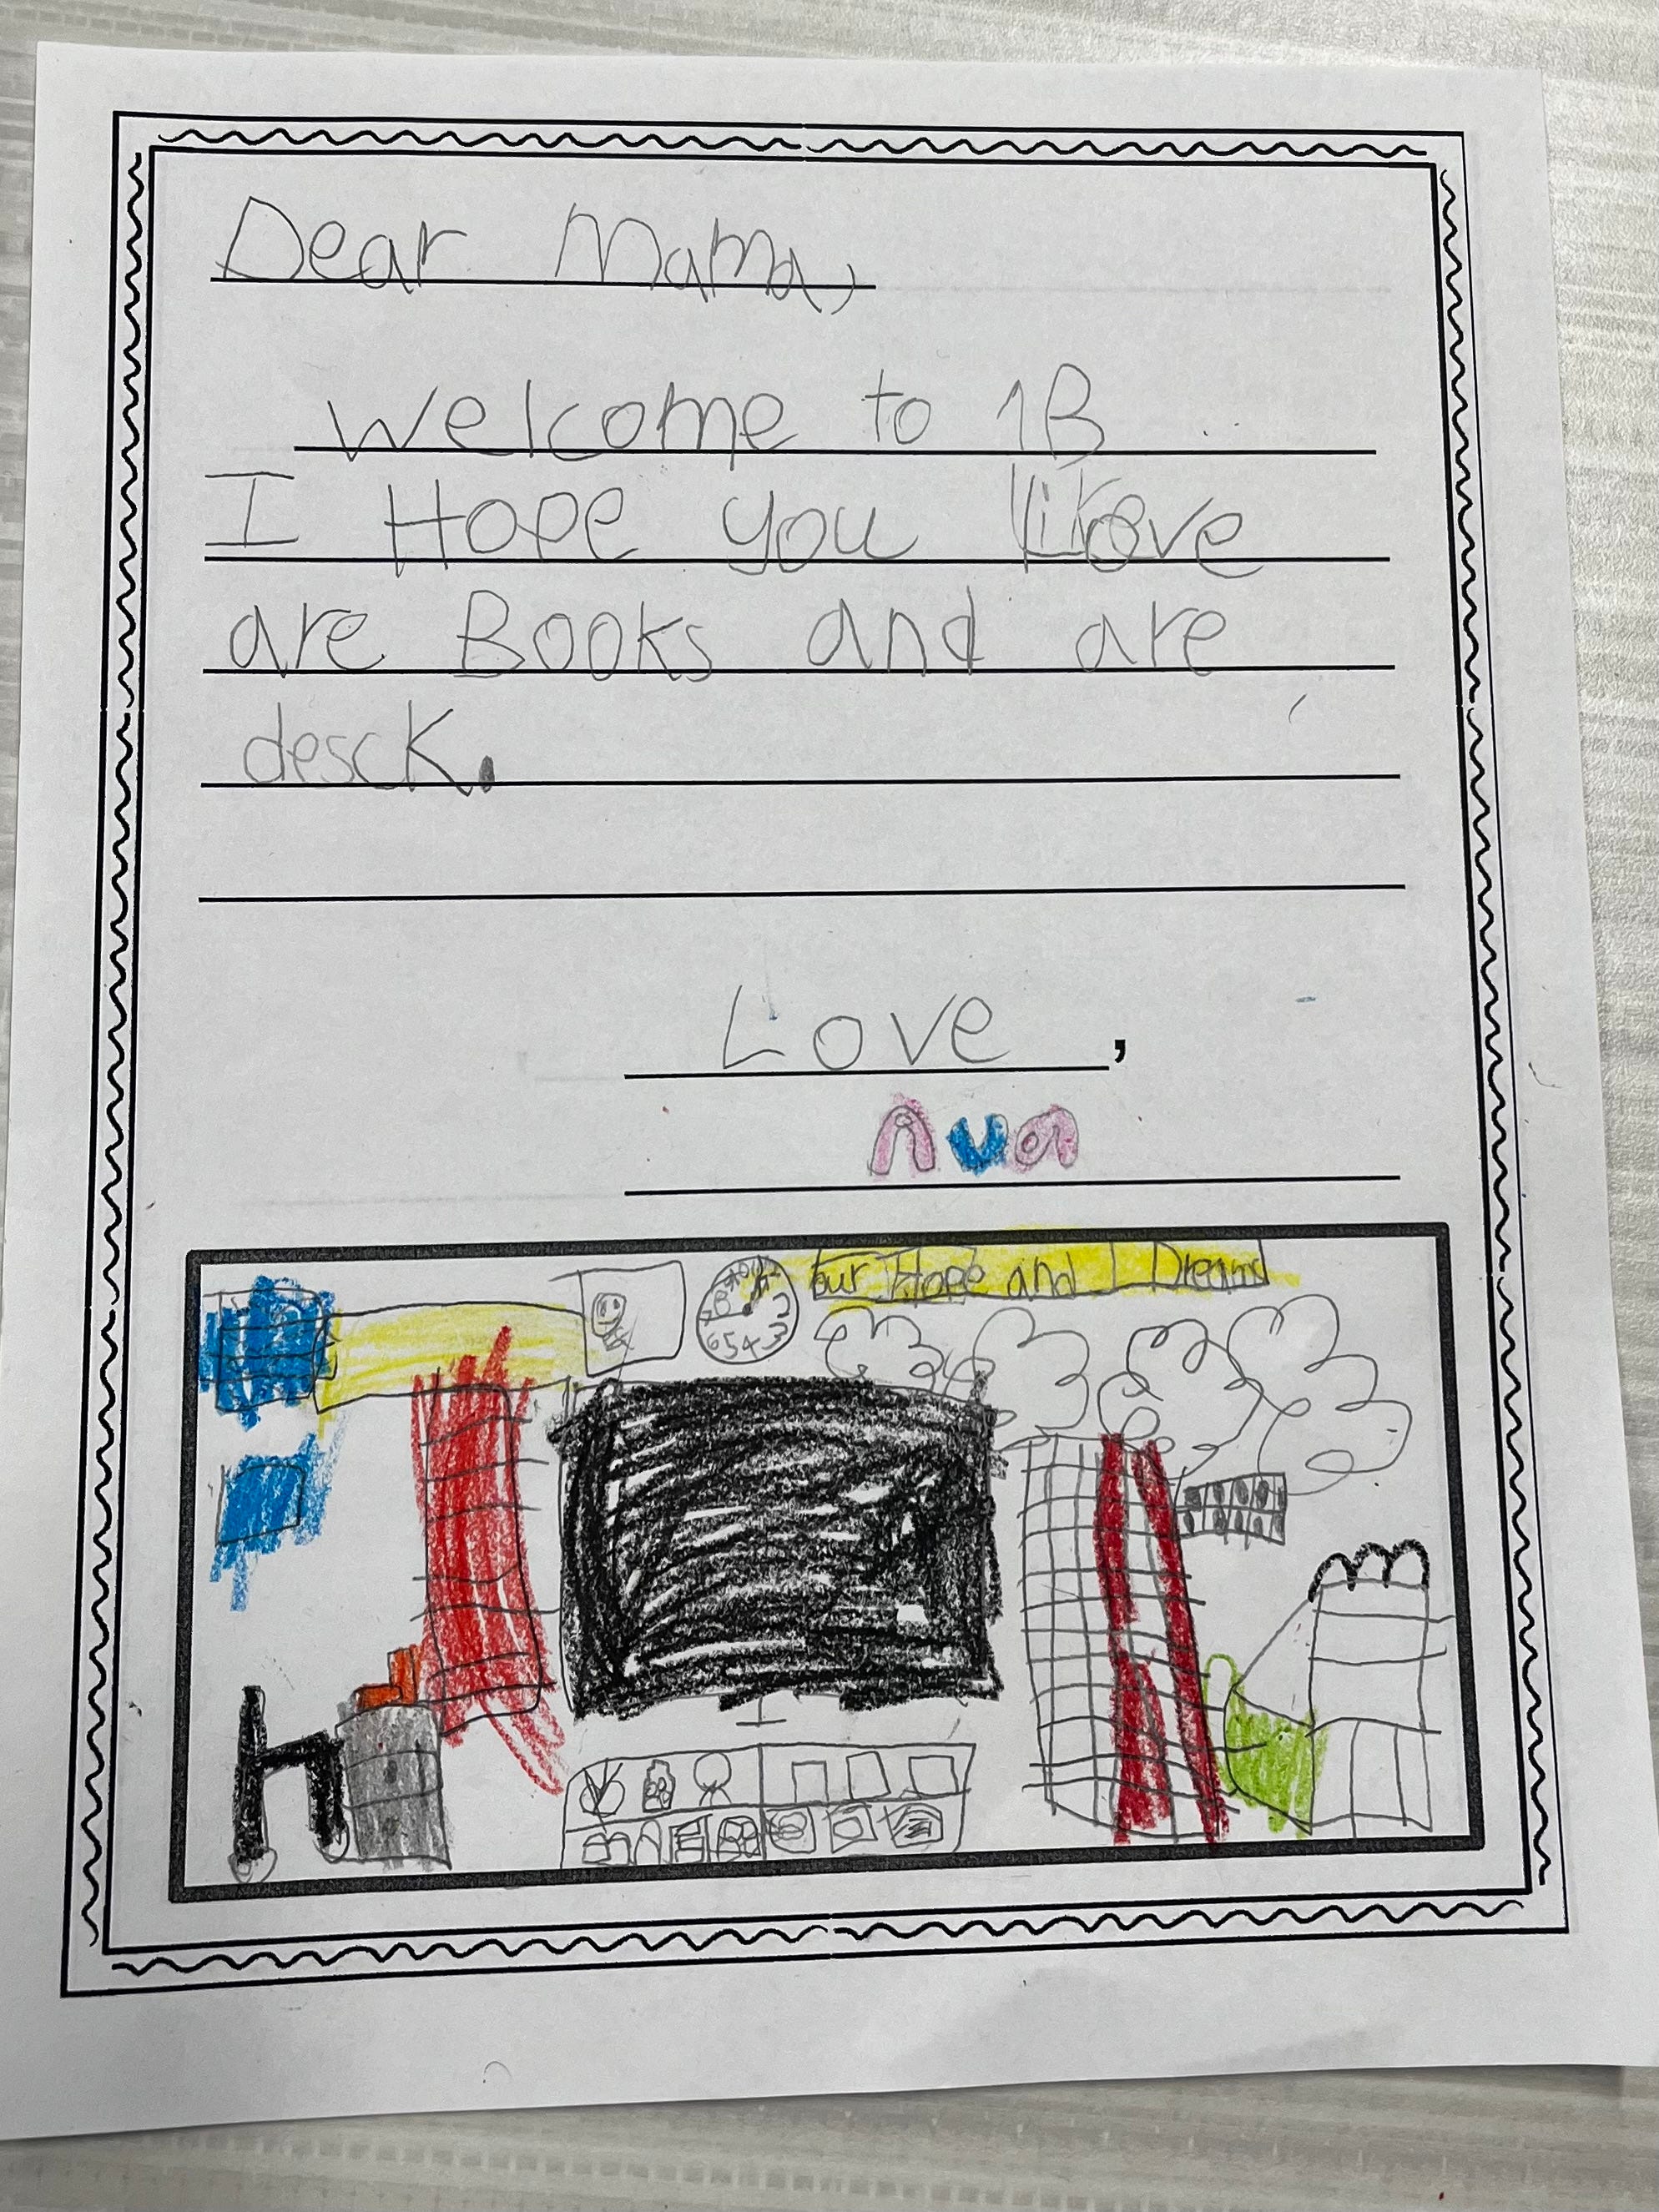 Dear Mama,
welcome to 1B
I Hope you love
are Books and are
desck.
Love,
Ava
our Hope and Dreams